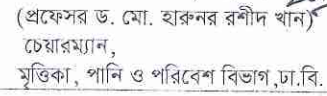 (প্রফেসর ড. মো. হারুনর রশীদ খান)
চেয়ারম্যান,
মৃত্তিকা, পানি ও পরিবেশ বিভাগ,ঢা.বি.